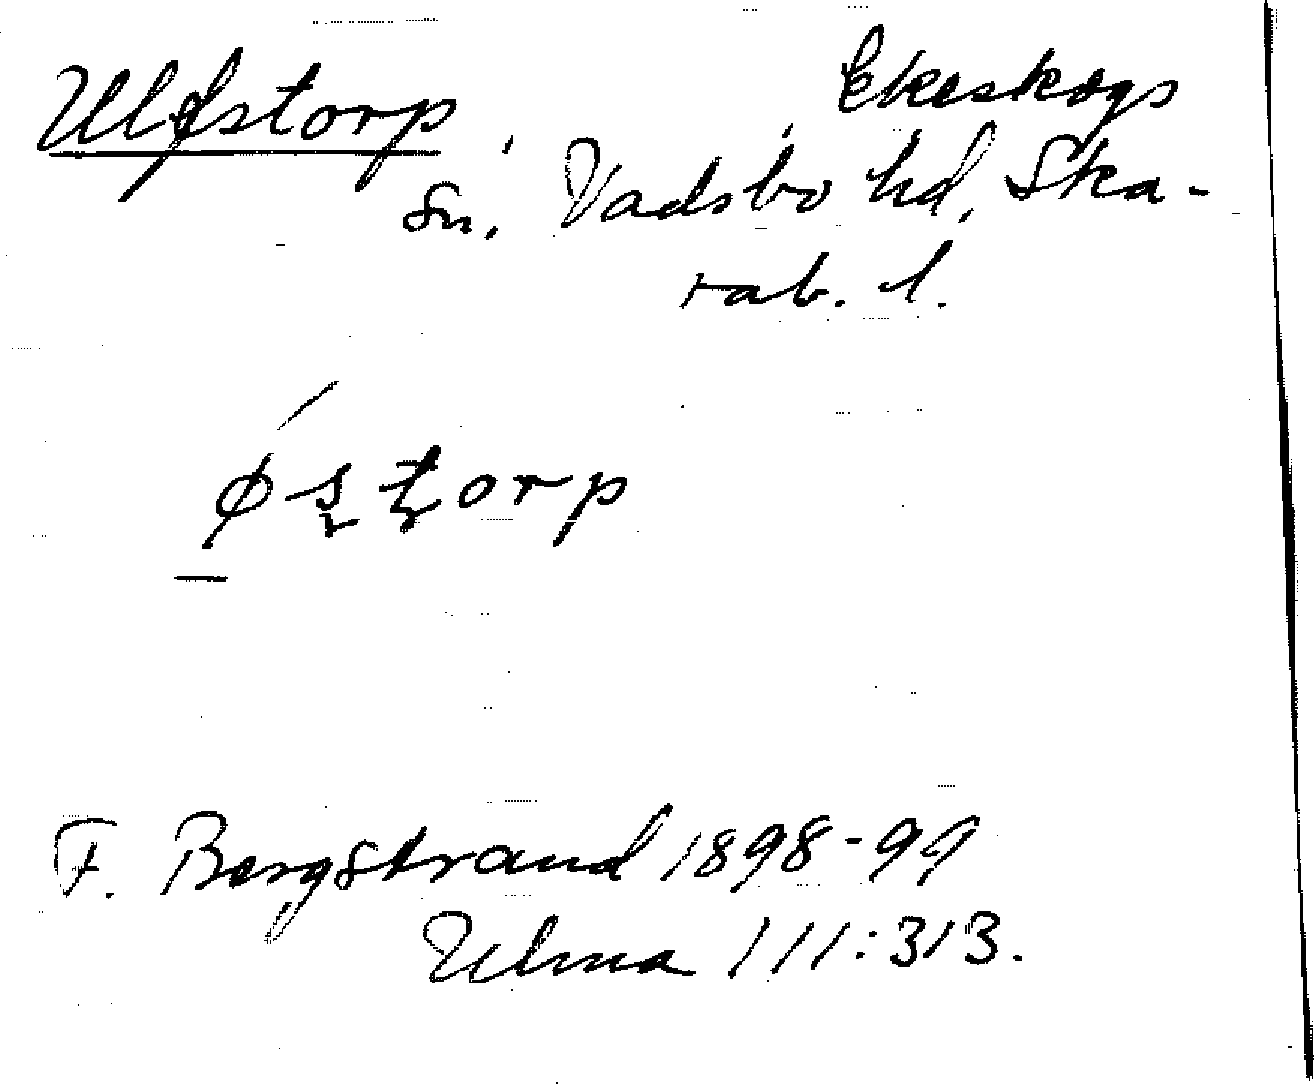 Ulfstorp, Ekeskogs
Sn, Vadsbo hd, Ska-
rab. l.
østorp
F. Bergstrand 1898-99
Ulma 111:313.